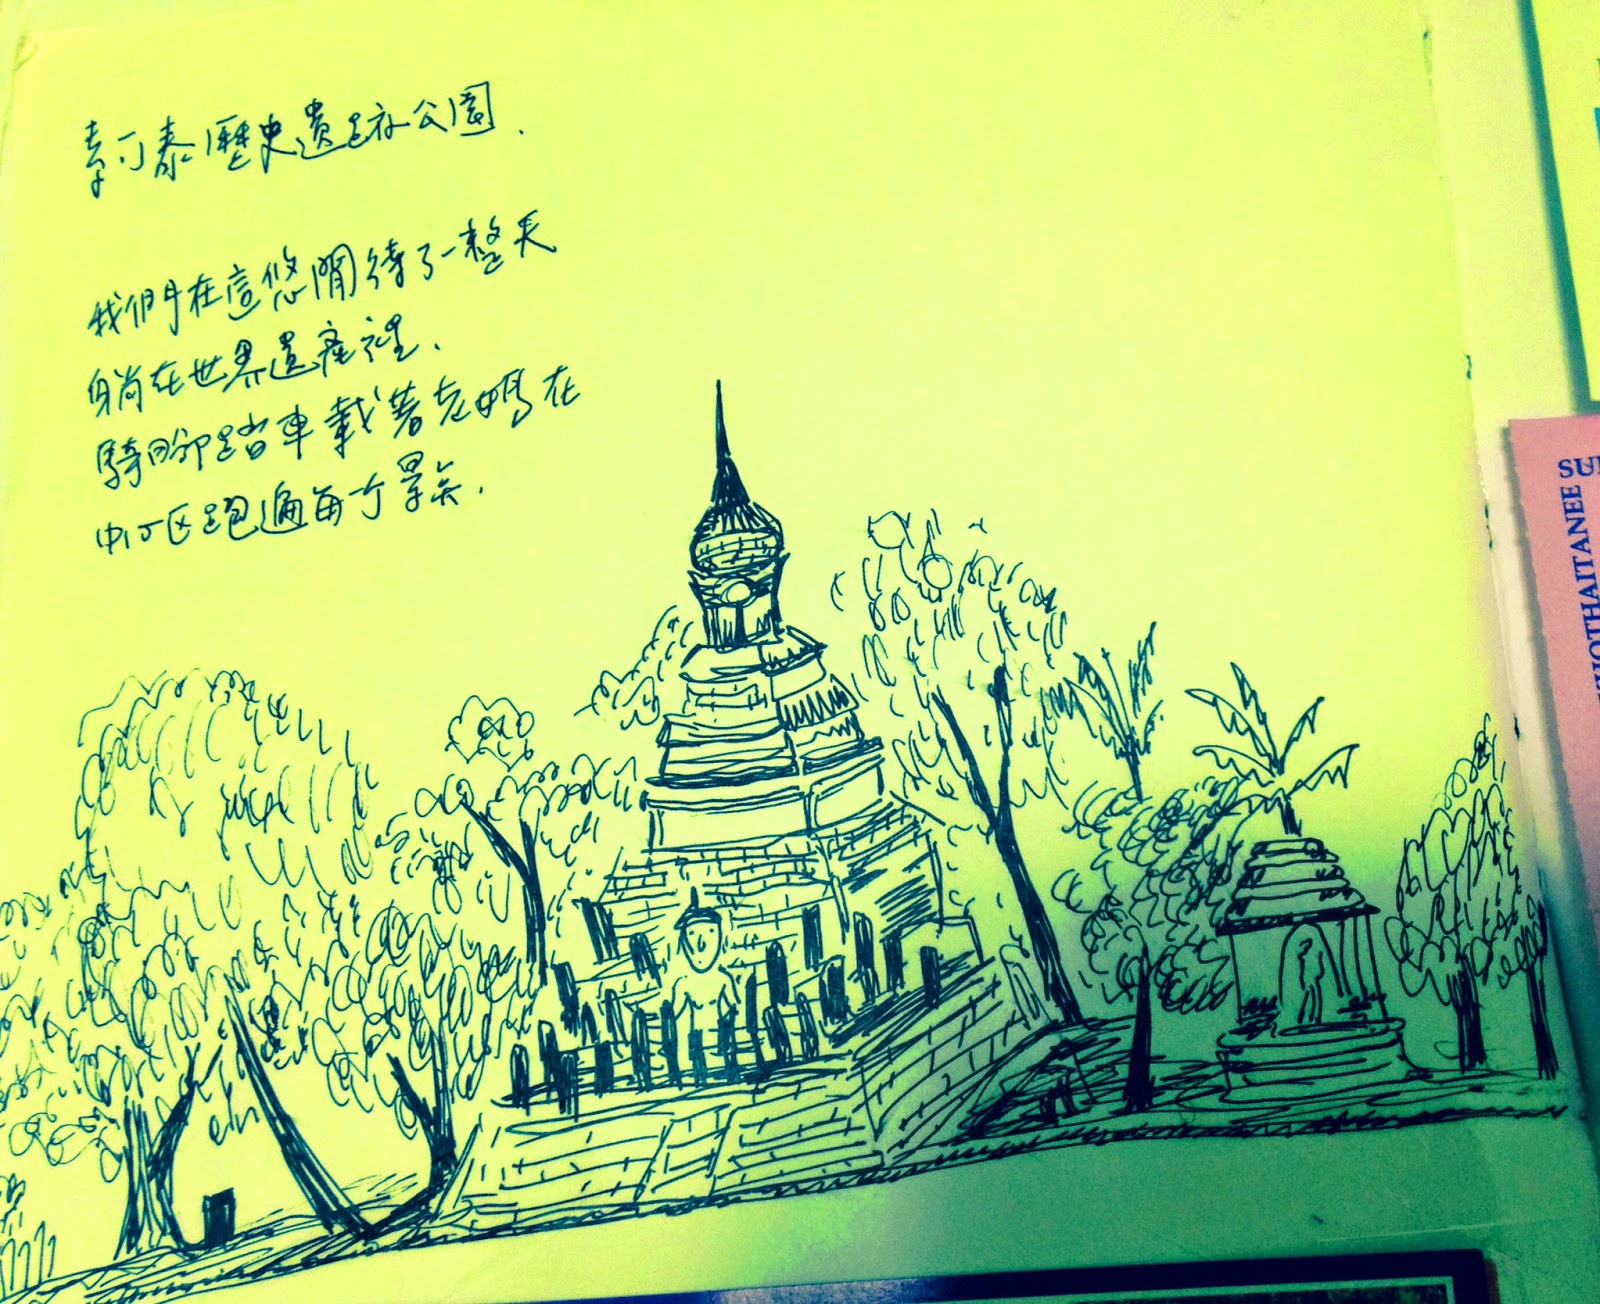 素可泰歷史遺跡公園.
我們在這悠閒待了一整天
躺在世界遺產裡.
騎腳踏車載著老媽在
中心區跑遍每個景點.
SU
KHOTHAITANEE